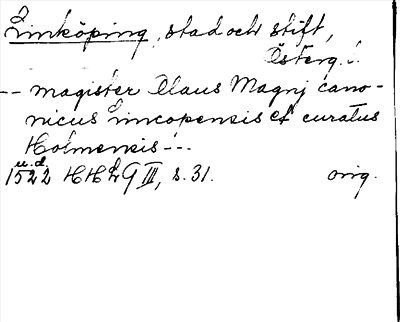 Linköping, stad och stift,
Österg. l.
-- magister Olaus Magnj cano-
nicus Lincopensis et curatus
Holmensis --.
u.d.
1522 HH
III, s. 31. orig.